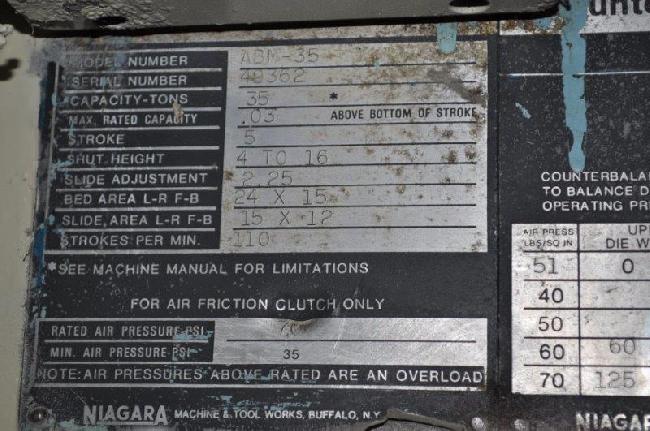 MODEL NUMBER ABM-35
SERIAL NUMBER 49362
CAPACITY-TONS 35 *
MAX. RATED CAPACITY .03 ABOVE BOTTOM OF STROKE
STROKE 5
SHUT. HEIGHT 4 TO 16
SLIDE ADJUSTMENT 2.25
BED AREA L-R F-B 24 X 15
SLIDE, AREA L-R F-B 15 X 12
STROKES PER MIN. 110
*SEE MACHINE MANUAL FOR LIMITATIONS
FOR AIR FRICTION CLUTCH ONLY
RATED AIR PRESSURE-PSI
MIN. AIR PRESSURE-PSI 35
NOTE: AIR PRESSURES ABOVE RATED ARE AN OVERLOAD
NIAGARA MACHINE & TOOL WORKS, BUFFALO, N.Y.
COUNTERBALA
TO BALANCE D
OPERATING PR
AIR PRESS UP
LBS/SQ IN DIE W
51 0
40
50
60 60
70 125
NIAGAR